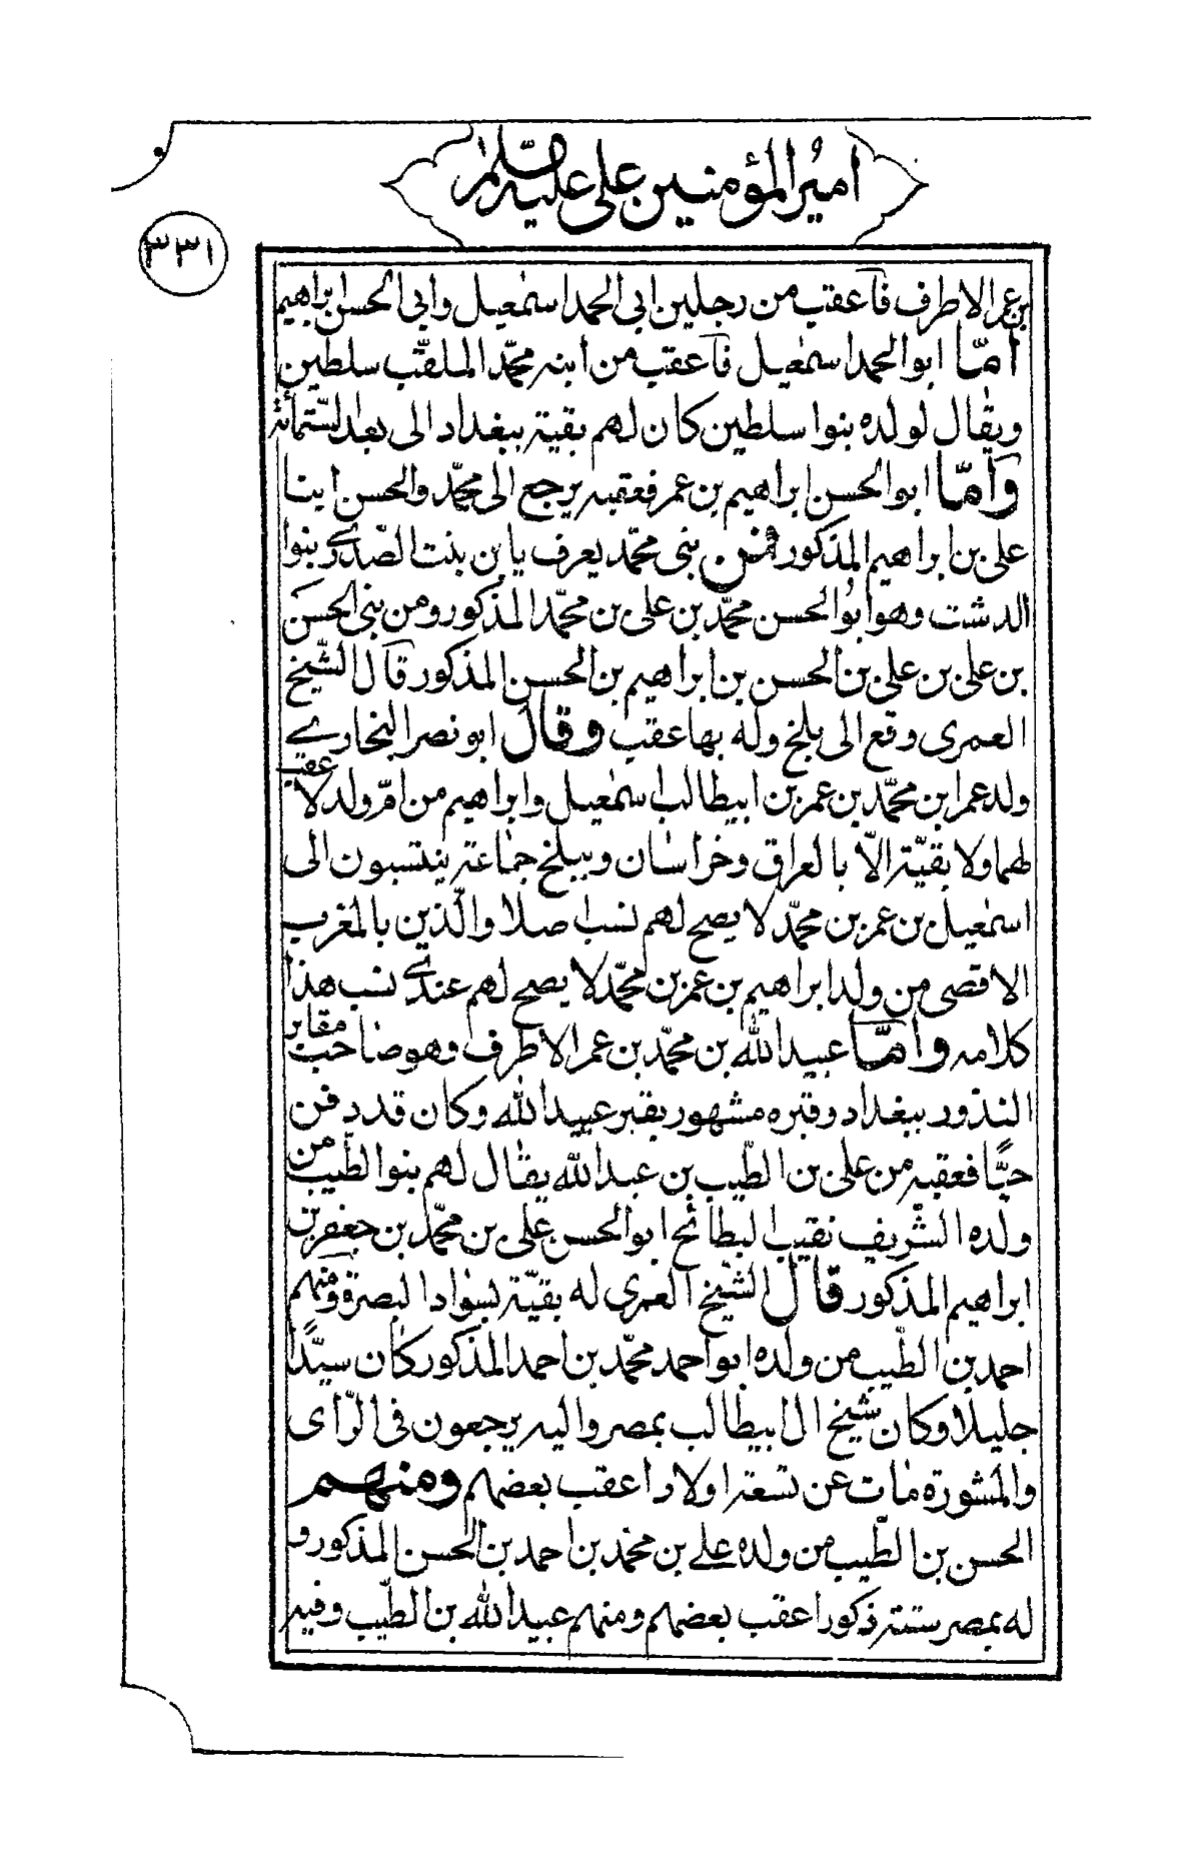 امیرالمؤمنین علی علیه السلام
٣٣١
بن عمر الاطرف فاعقب من رجلین ابی الحمد اسمعیل وابی الحسن ابراهیم
امّا ابوالحمد اسمعیل فاعقب من ابنه محمّد الملقّب سلطین
ویقال لولده بنوا سلطین کان لهم بقیة ببغداد الی بعد الستمائة
وامّا ابوالحسن ابراهیم بن عمر فعقبه یرجع الی محمّد والحسن ابنا
علی بن ابراهیم المذکور فمن بنی محمّد یعرف بابن بنت الصّدری بنوا
الدشت وهو ابوالحسن محمّد بن علی بن محمّد المذکور ومن بنی الحسن
بن علی بن علی بن الحسن بن ابراهیم بن الحسن المذکور قال الشّیخ
العمری وقع الی بلخ وله بها عقب وقال ابونصر البخاری
ولد عمر ابن محمّد بن عمر بن ابیطالب اسمعیل وابراهیم من امّ ولد لا عقب
لهما ولا بقیّة الّا بالعراق وخراسان وببلخ جماعة ینتسبون الی
اسمعیل بن عمر بن محمّد لا یصح لهم نسب اصلا والّذین بالمغرب
الاقصی من ولد ابراهیم بن عمر بن محمّد لا یصح لهم عندی نسب هذا
کلامه وامّا عبیدالله بن محمّد بن عمر الاطرف وهو صاحب مقابر
النذور ببغداد وقبره مشهور بقبر عبیدالله وکان قد دفن
حیًّا فعقبه من علی بن الطّیب بن عبدالله یقال لهم بنوا الطّیب من
ولده الشّریف نقیب البطائح ابوالحسن علی بن محمّد بن جعفر بن
ابراهیم المذکور قال الشّیخ العمری له بقیّة بسواد البصرة ومنهم
احمد بن الطّیب من ولده ابواحمد محمّد بن احمد المذکور کان سیّدًا
جلیلا وکان شیخ ال ابیطالب بمصر والیه یرجعون فی الرّأی
والمشورة مات عن تسعة اولاد اعقب بعضهم ومنهم
الحسن بن الطّیب من ولده علی بن محمّد بن احمد بن الحسن المذکور و
له بمصر ستة ذکور اعقب بعضهم ومنهم عبیدالله بن الطّیب وفیه